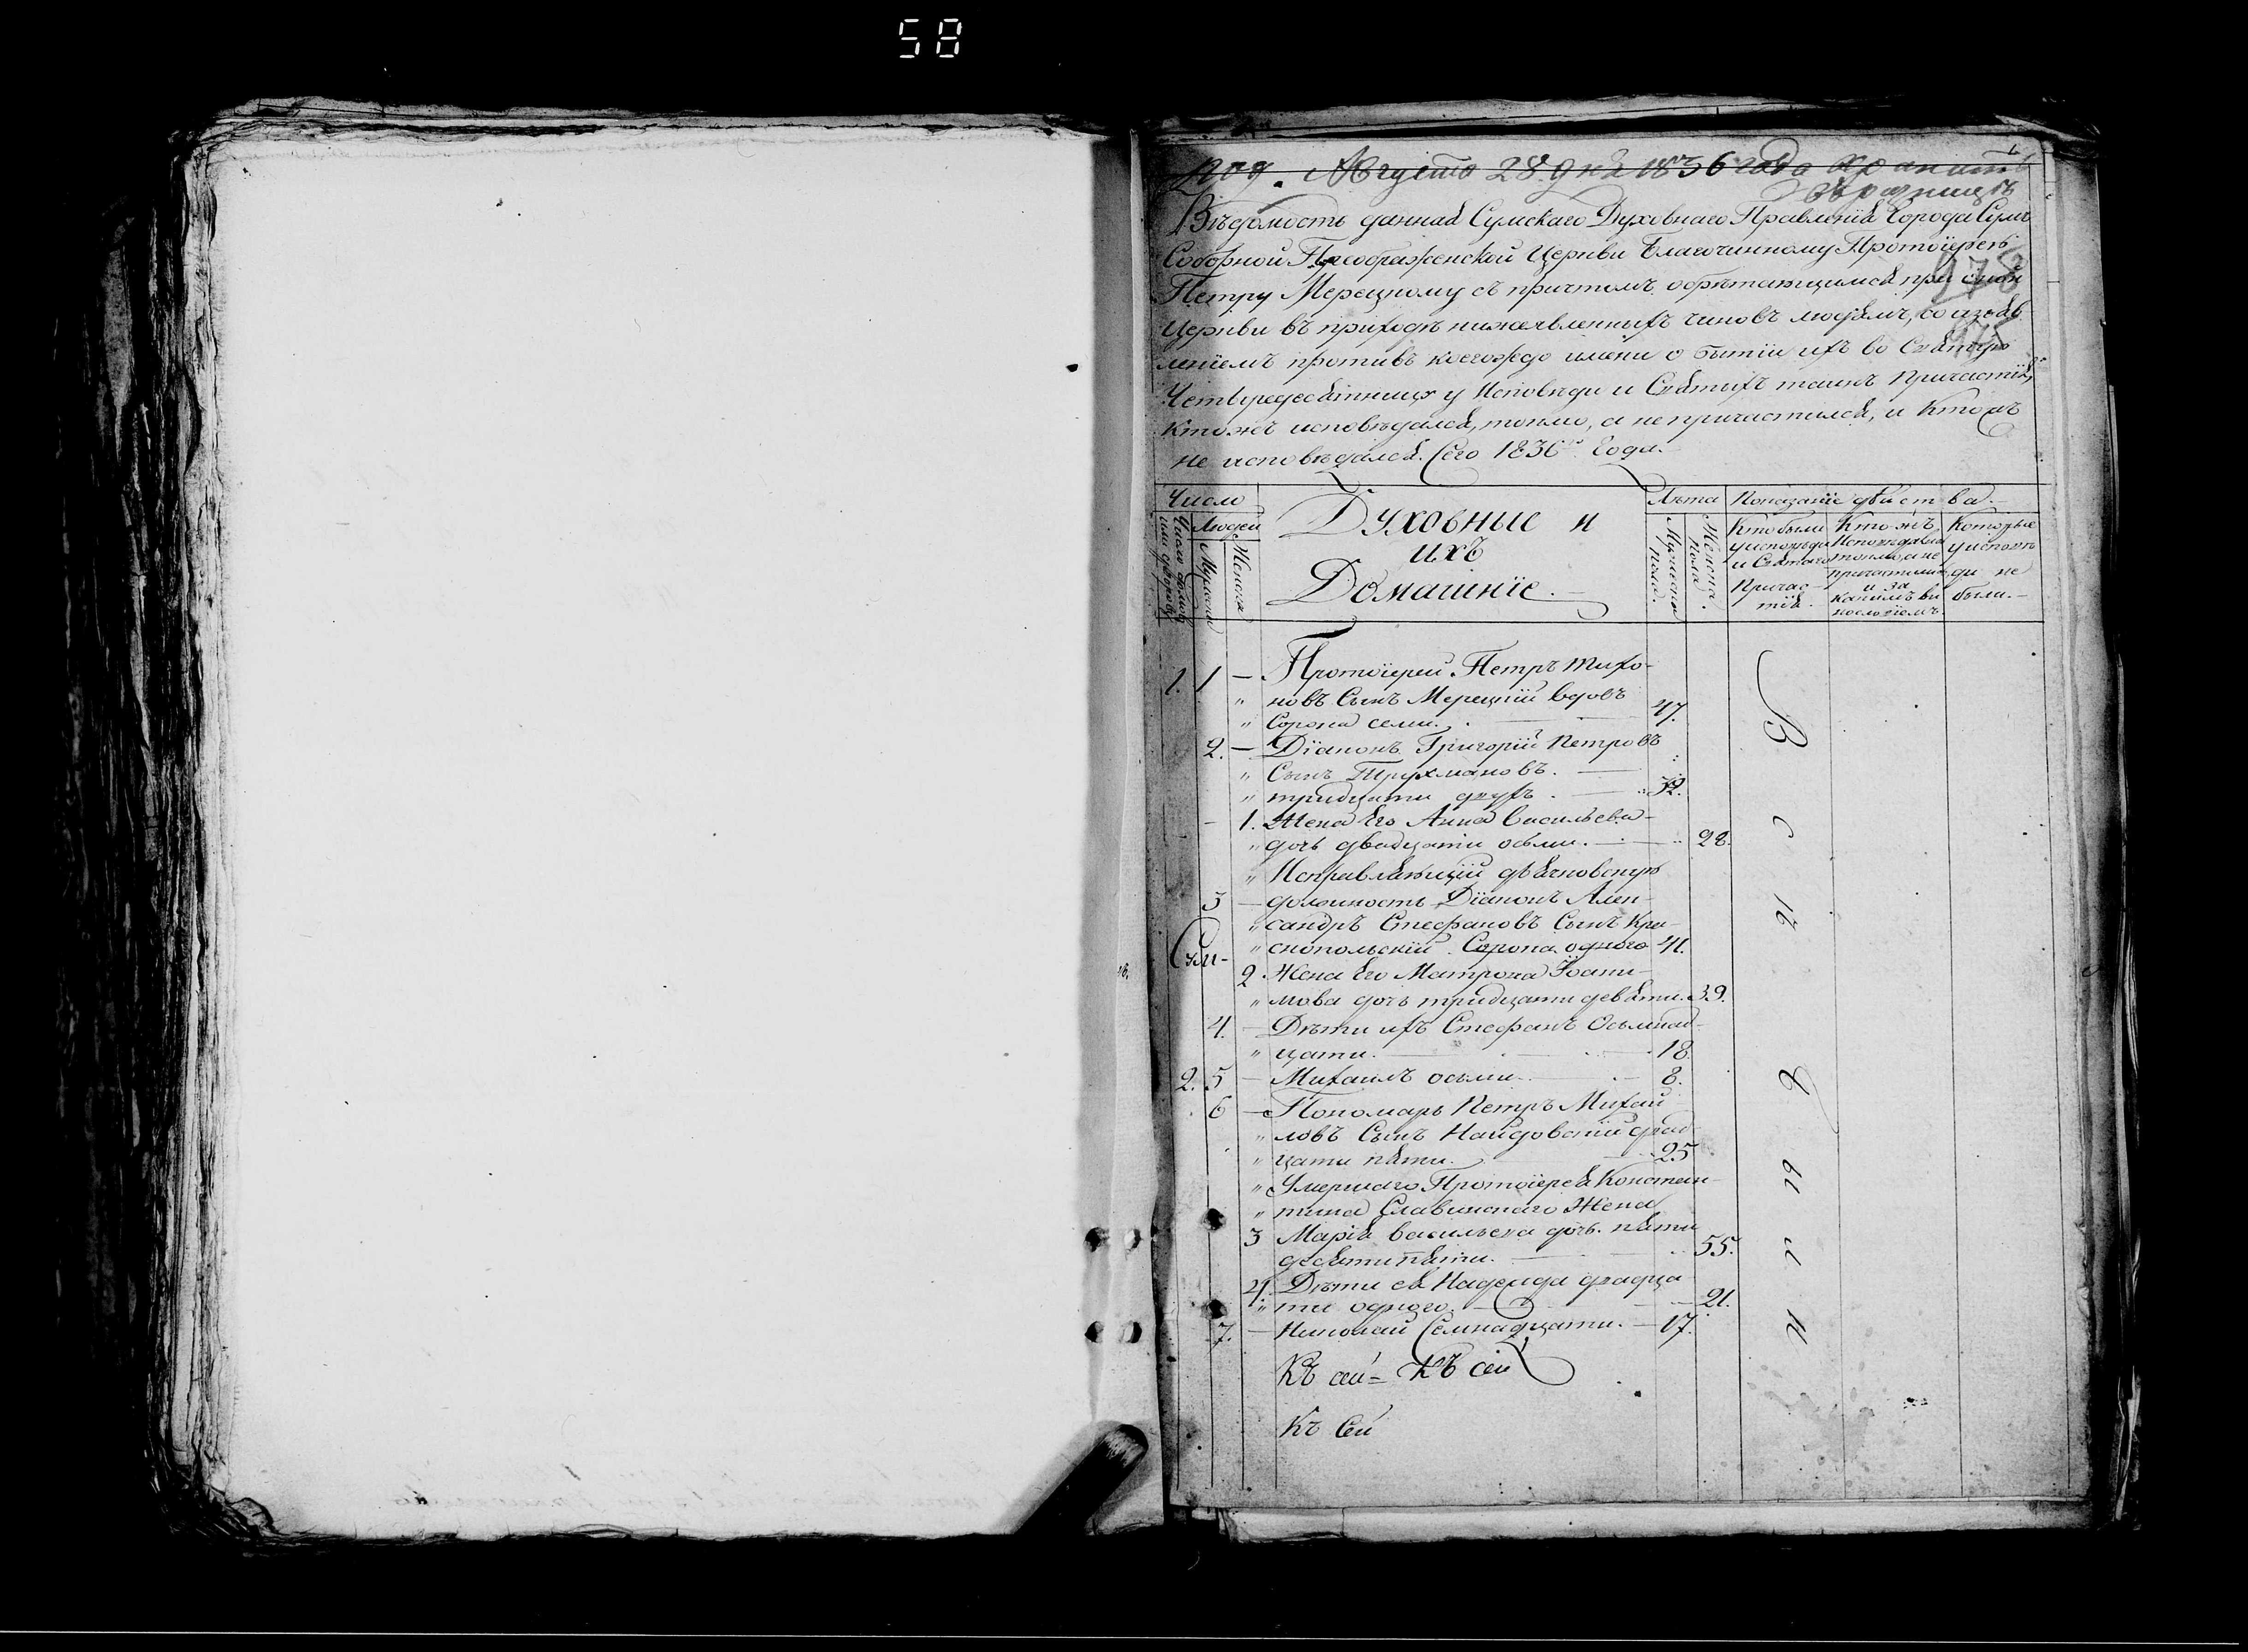 58
Августа 28 дня 1836 года хранить
Вѣдомость данная Сумскаго Духовнаго Правленія Города Сумъ
Соборной Преображенской Церкви Благочинному Протоіерею
178
Петру Мерецкому съ причтомъ обрѣтающимся при оной
Церкви въ приходѣ нижеявленныхъ чиновъ людямъ, со изъяв
леніемъ противъ коегождо имени о бытіи ихъ во Святую
Четыредесятницу у Исповѣди и Святыхъ таинъ Причастія,
Ктожъ исповѣдался, токмо, а не причастился, и Ктожъ
не исповѣдался. Сего 1836го Года.
Число
Людей
Число домовъ
Мужеска
Женска
Духовные и
ихъ
Домашніе.
Лѣта
Мужеска пола.
Женска пола.
Показаніе дѣйства.
Кто были
у исповѣди
и Святаго
Причас-
тія.
Кто жъ
Исповѣдался
токмо, а не
причастился
и за
какимъ ви
нословіемъ.
Которые
у исповѣ
ди не
были.
1. 1 — Протоіерей Петръ Тихо-
" новъ Сынъ Мерецкій вдовъ
" Сорока семи. 47.
2. — Діаконъ Григорій Петровъ
" Сынъ Трухмановъ.
" тридцати двухъ. 32.
1. Жена Его Анна Васильева
" дочь двадцати осьми. 28.
" Исправляющій дьячковскую
3 — должность Діаконъ Алек-
" сандръ Стефановъ Сынъ Кра-
" снопольскій Сорока одного 41.
Сум-
2. Жена Его Матрона Іоаки-
" мова дочь тридцати девяти. 39.
4. — Дѣти ихъ Стефанъ Осьмнад-
" цати. 18.
2. 5 — Михаилъ осьми. 8.
6 — Пономарь Петръ Михай
" ловъ Сынъ Найдовскій двад
" цати пяти. 25
" Умершаго Протоіерея Констан-
" тина Славинскаго Жена
3 Марія Васильева дочь. пяти
десяти пяти. 55.
4. Дѣти ея Надежда двадца
" ти одного. 21.
7. — Николай Семнадцати. 17.
Къ сей = Къ сей
Къ Сей